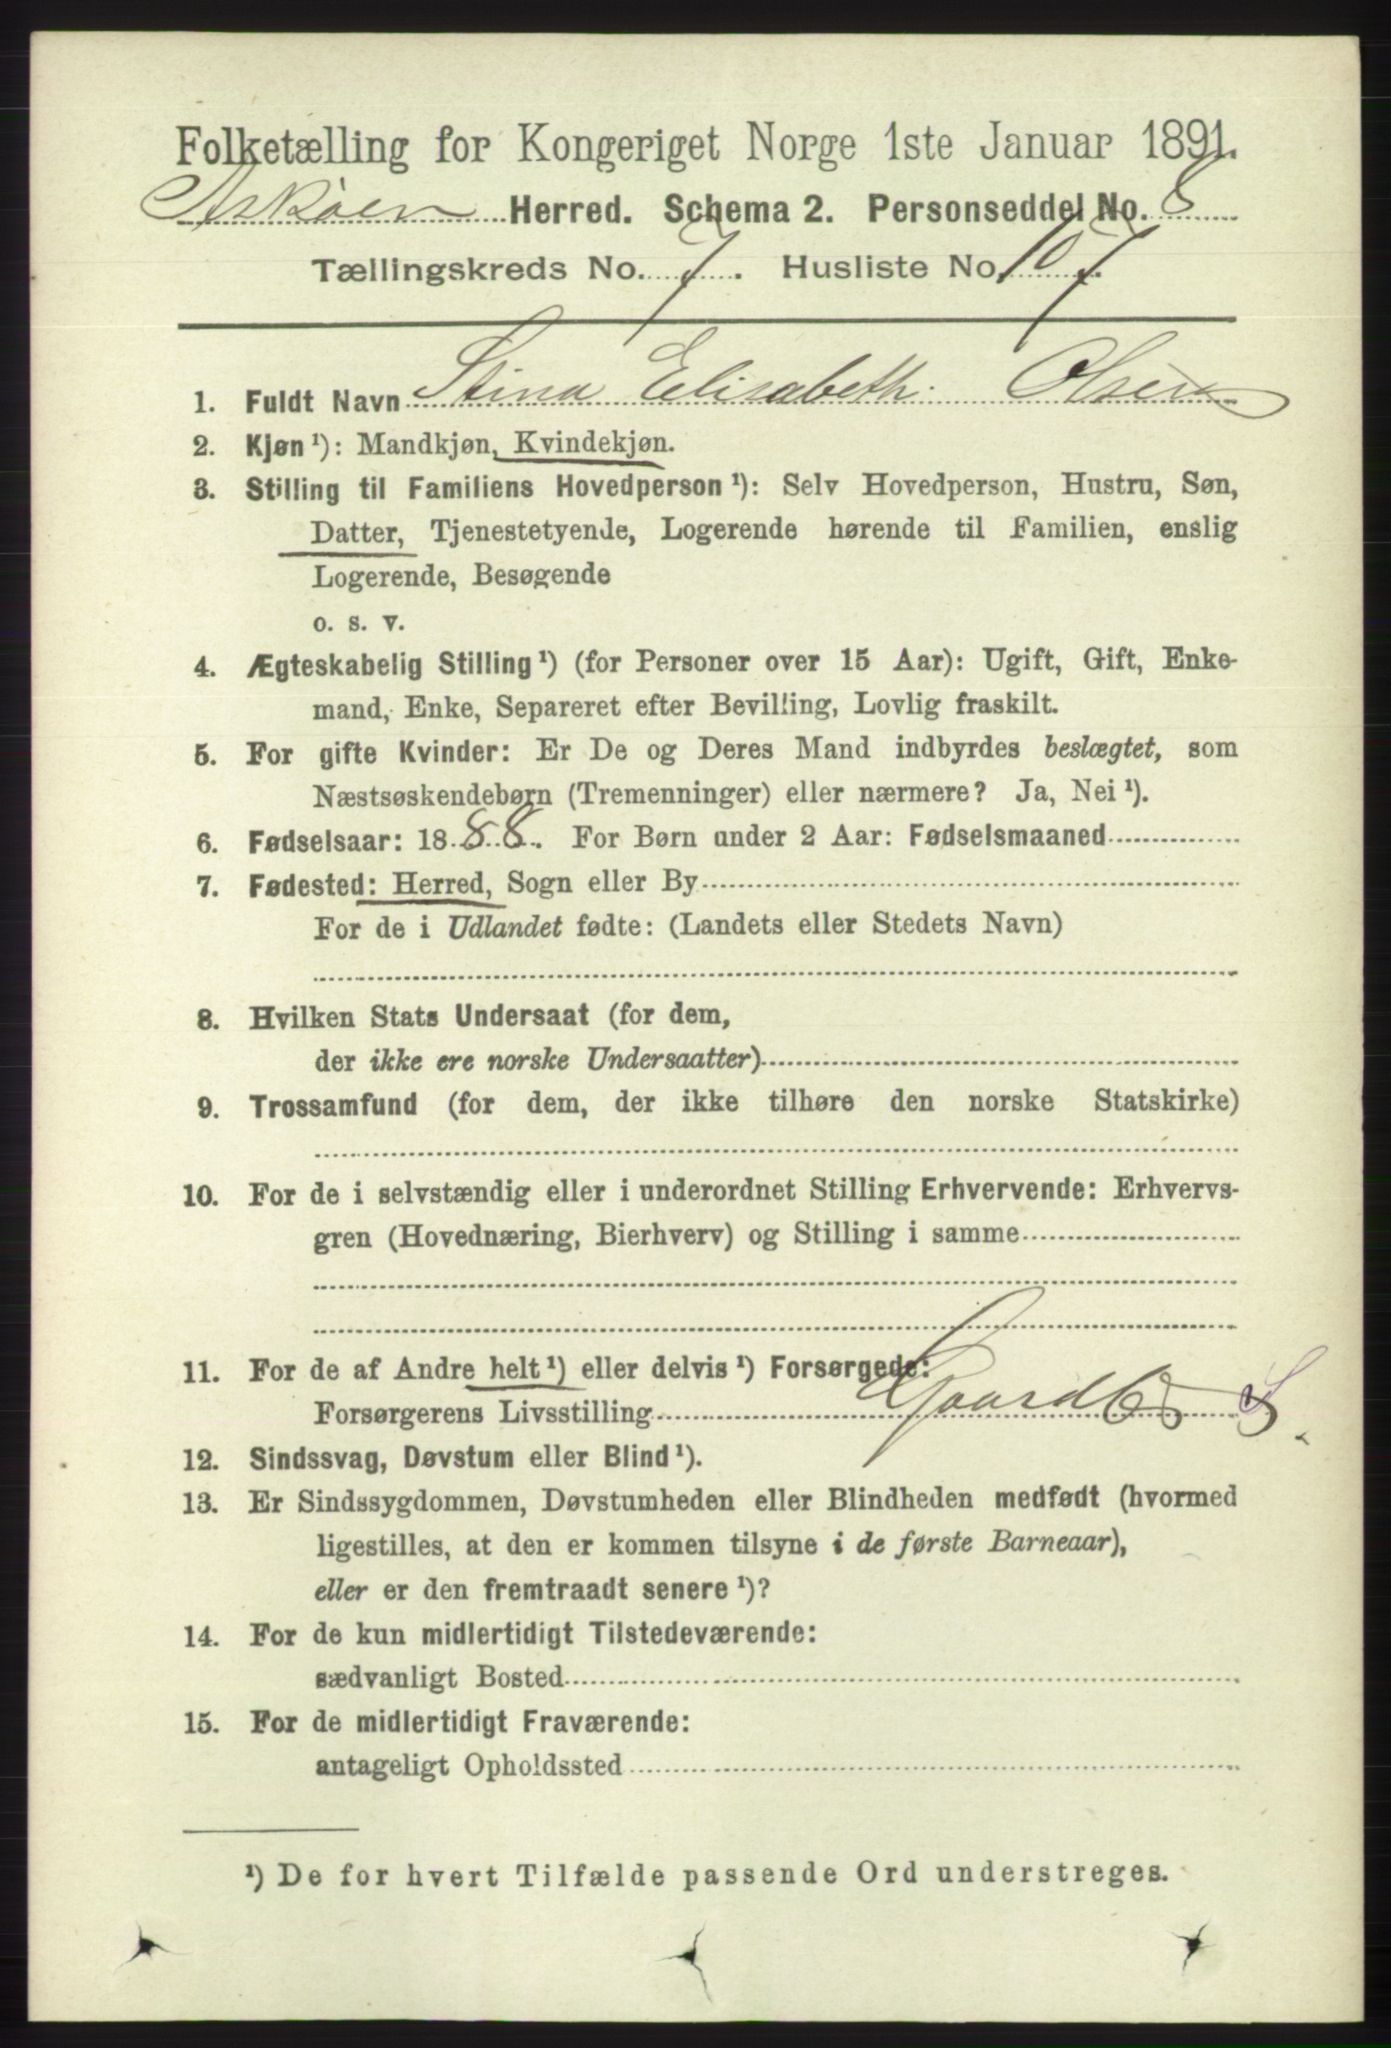 Folketælling for Kongeriget Norge 1ste Januar 1891.
Askøen Herred. Schema 2. Personseddel No. 8
Tællingskreds No. 7. Husliste No. 107.
1. Fuldt Navn Stina Elisabeth Olsen
2. Kjøn¹): Mandkjøn, Kvindekjøn.
3. Stilling til Familiens Hovedperson¹): Selv Hovedperson, Hustru, Søn,
Datter, Tjenestetyende, Logerende hørende til Familien, enslig
Logerende, Besøgende
o. s. v.
4. Ægteskabelig Stilling¹) (for Personer over 15 Aar): Ugift, Gift, Enke-
mand, Enke, Separeret efter Bevilling, Lovlig fraskilt.
5. For gifte Kvinder: Er De og Deres Mand indbyrdes beslægtet, som
Næstsøskendebørn (Tremenninger) eller nærmere? Ja, Nei¹).
6. Fødselsaar: 1888. For Børn under 2 Aar: Fødselsmaaned
7. Fødested: Herred, Sogn eller By
For de i Udlandet fødte: (Landets eller Stedets Navn)
8. Hvilken Stats Undersaat (for dem,
der ikke ere norske Undersaatter)
9. Trossamfund (for dem, der ikke tilhøre den norske Statskirke)
10. For de i selvstændig eller i underordnet Stilling Erhvervende: Erhvervs-
gren (Hovednæring, Bierhverv) og Stilling i samme
11. For de af Andre helt¹) eller delvis¹) Forsørgede:
Forsørgerens Livsstilling Gaardbr S.
12. Sindssvag, Døvstum eller Blind¹).
13. Er Sindssygdommen, Døvstumheden eller Blindheden medfødt (hvormed
ligestilles, at den er kommen tilsyne i de første Barneaar),
eller er den fremtraadt senere¹)?
14. For de kun midlertidigt Tilstedeværende:
sædvanligt Bosted
15. For de midlertidigt Fraværende:
antageligt Opholdssted
¹) De for hvert Tilfælde passende Ord understreges.